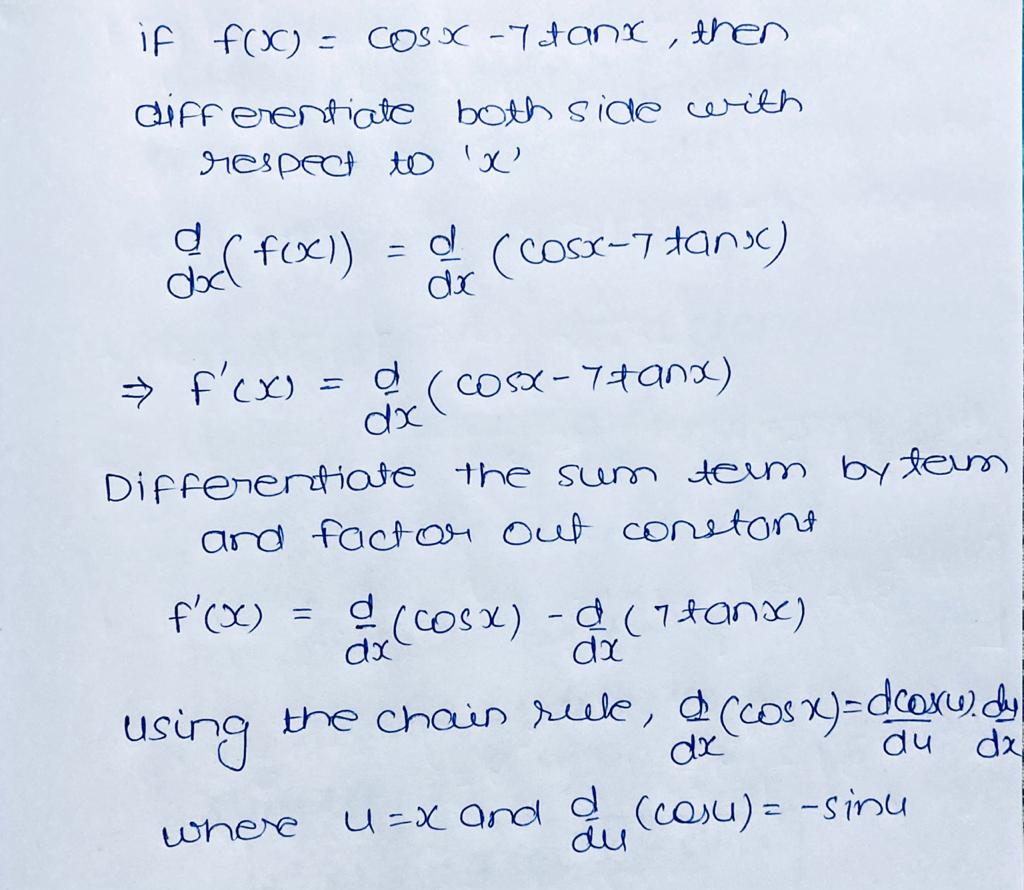 if f(x) = cosx - 7tanx, then
differentiate both side with
respect to 'x'
d/dx (f(x)) = d/dx (cosx - 7tanx)
⇒ f'(x) = d/dx (cosx - 7tanx)
Differentiate the sum term by term
and factor out constant
f'(x) = d/dx (cosx) - d/dx (7tanx)
using the chain rule, d/dx (cosx) = dcosu/du . du/dx
where u = x and d/du (cosu) = -sinu